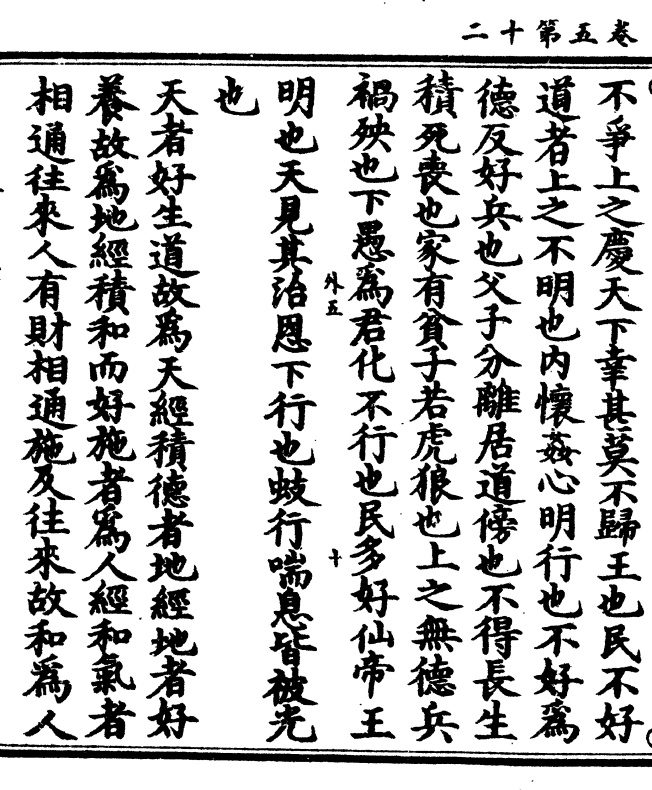 卷五第十二
不爭上之慶天下幸甚莫不歸王也民不好
道者上之不明也內懷姦心明行也不好爲
德反好兵也父子分離居道傍也不得長生
積死喪也家有貧子若虎狼也上之無德兵
禍殃也下愚爲君化不行也民多好仙帝王
外五
十
明也天見其治恩下行也蚑行喘息皆被光
也
天者好生道故爲天經積德者地經地者好
養故爲地經積和而好施者爲人經和氣者
相通往來人有財相通施及往來故和爲人